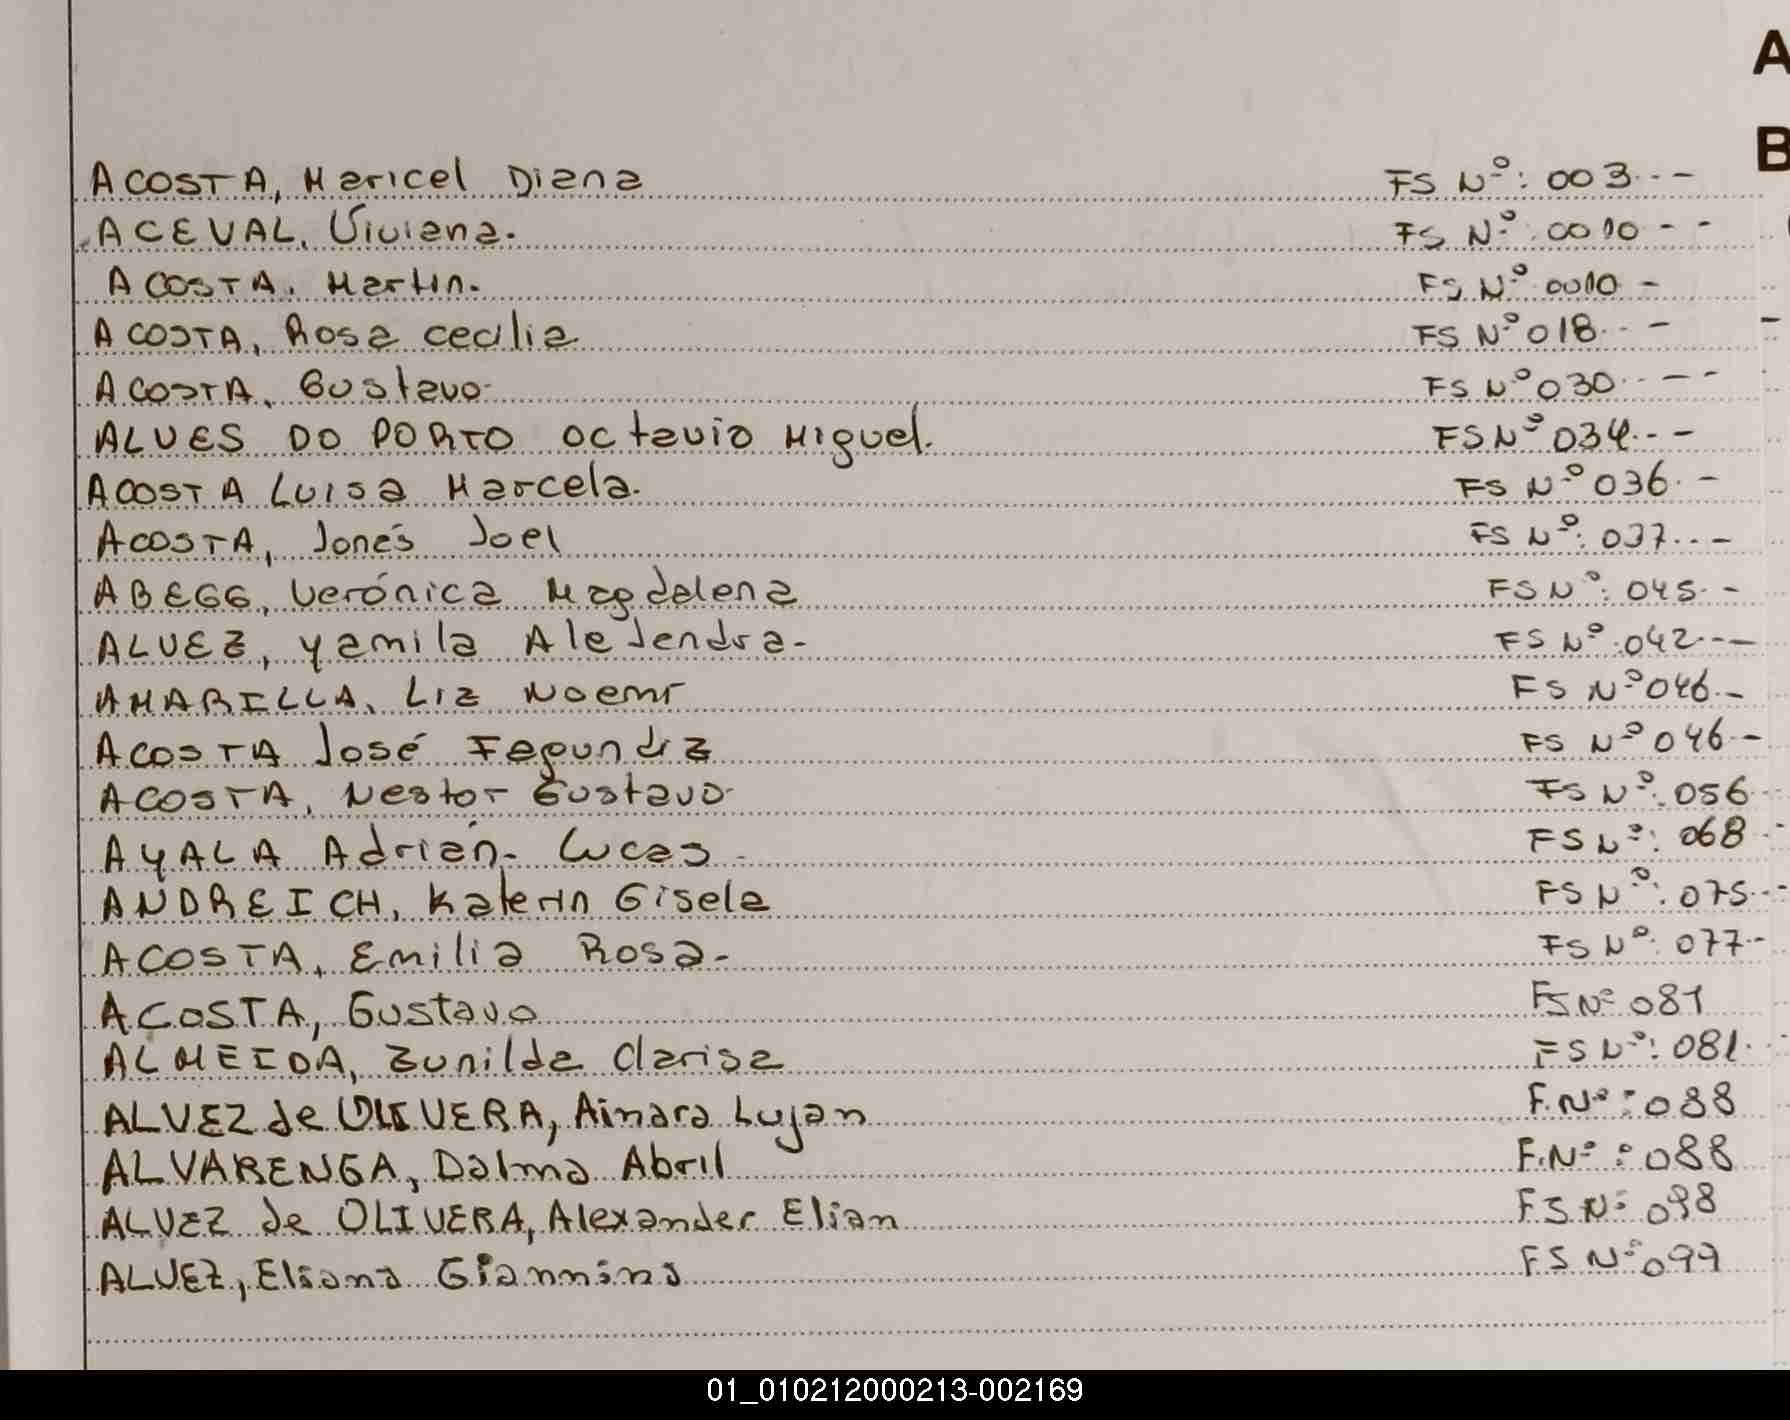 A
B
ACOSTA, Maricel Diana FS Nº: 003 - -
ACEVAL, Viviana. FS Nº: 0010 - -
ACOSTA. Martin. FS Nº 0010 -
ACOSTA, Rosa cecilia FS Nº 018 - -
ACOSTA, Gustavo FS Nº 030 - - -
ALVES DO PORTO Octavio Miguel. FS Nº 034 - -
ACOSTA Luisa Marcela. FS Nº 036 - -
ACOSTA, Jonés Joel FS Nº: 037 - -
ABEGG, Verónica Magdalena FS Nº: 045 - -
ALVEZ, Yamila Alejendra - FS Nº: 042 - -
AMARILLA, Liz Noemí FS Nº 046 -
ACOSTA José FS Nº 046 -
ACOSTA, Nestor Gustavo FS Nº: 056
AYALA Adrián - Lucas - FS Nº: 068
ANDREICH, Katerin Gisela FS Nº: 075 - -
ACOSTA, Emilia Rosa - FS Nº: 077 -
ACOSTA, Gustavo FS Nº 081
ALMEIDA, Zunilda Clarisa FS Nº: 081
ALVEZ de OLIVERA, Ainara Lujan F. Nº: 088
ALVARENGA, Dalma Abril F. Nº: 088
ALVEZ de OLIVERA, Alexander Elian FS Nº 098
ALVEZ, Eliana Giannina FS Nº 099
01_010212000213-002169